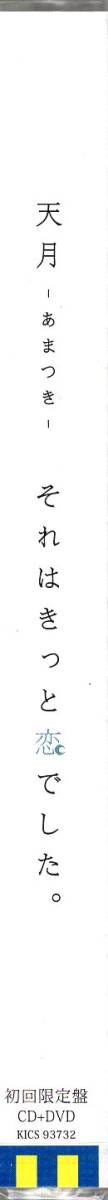 天月-あまつき- それはきっと恋でした。
初回限定盤
CD+DVD
KICS 93732